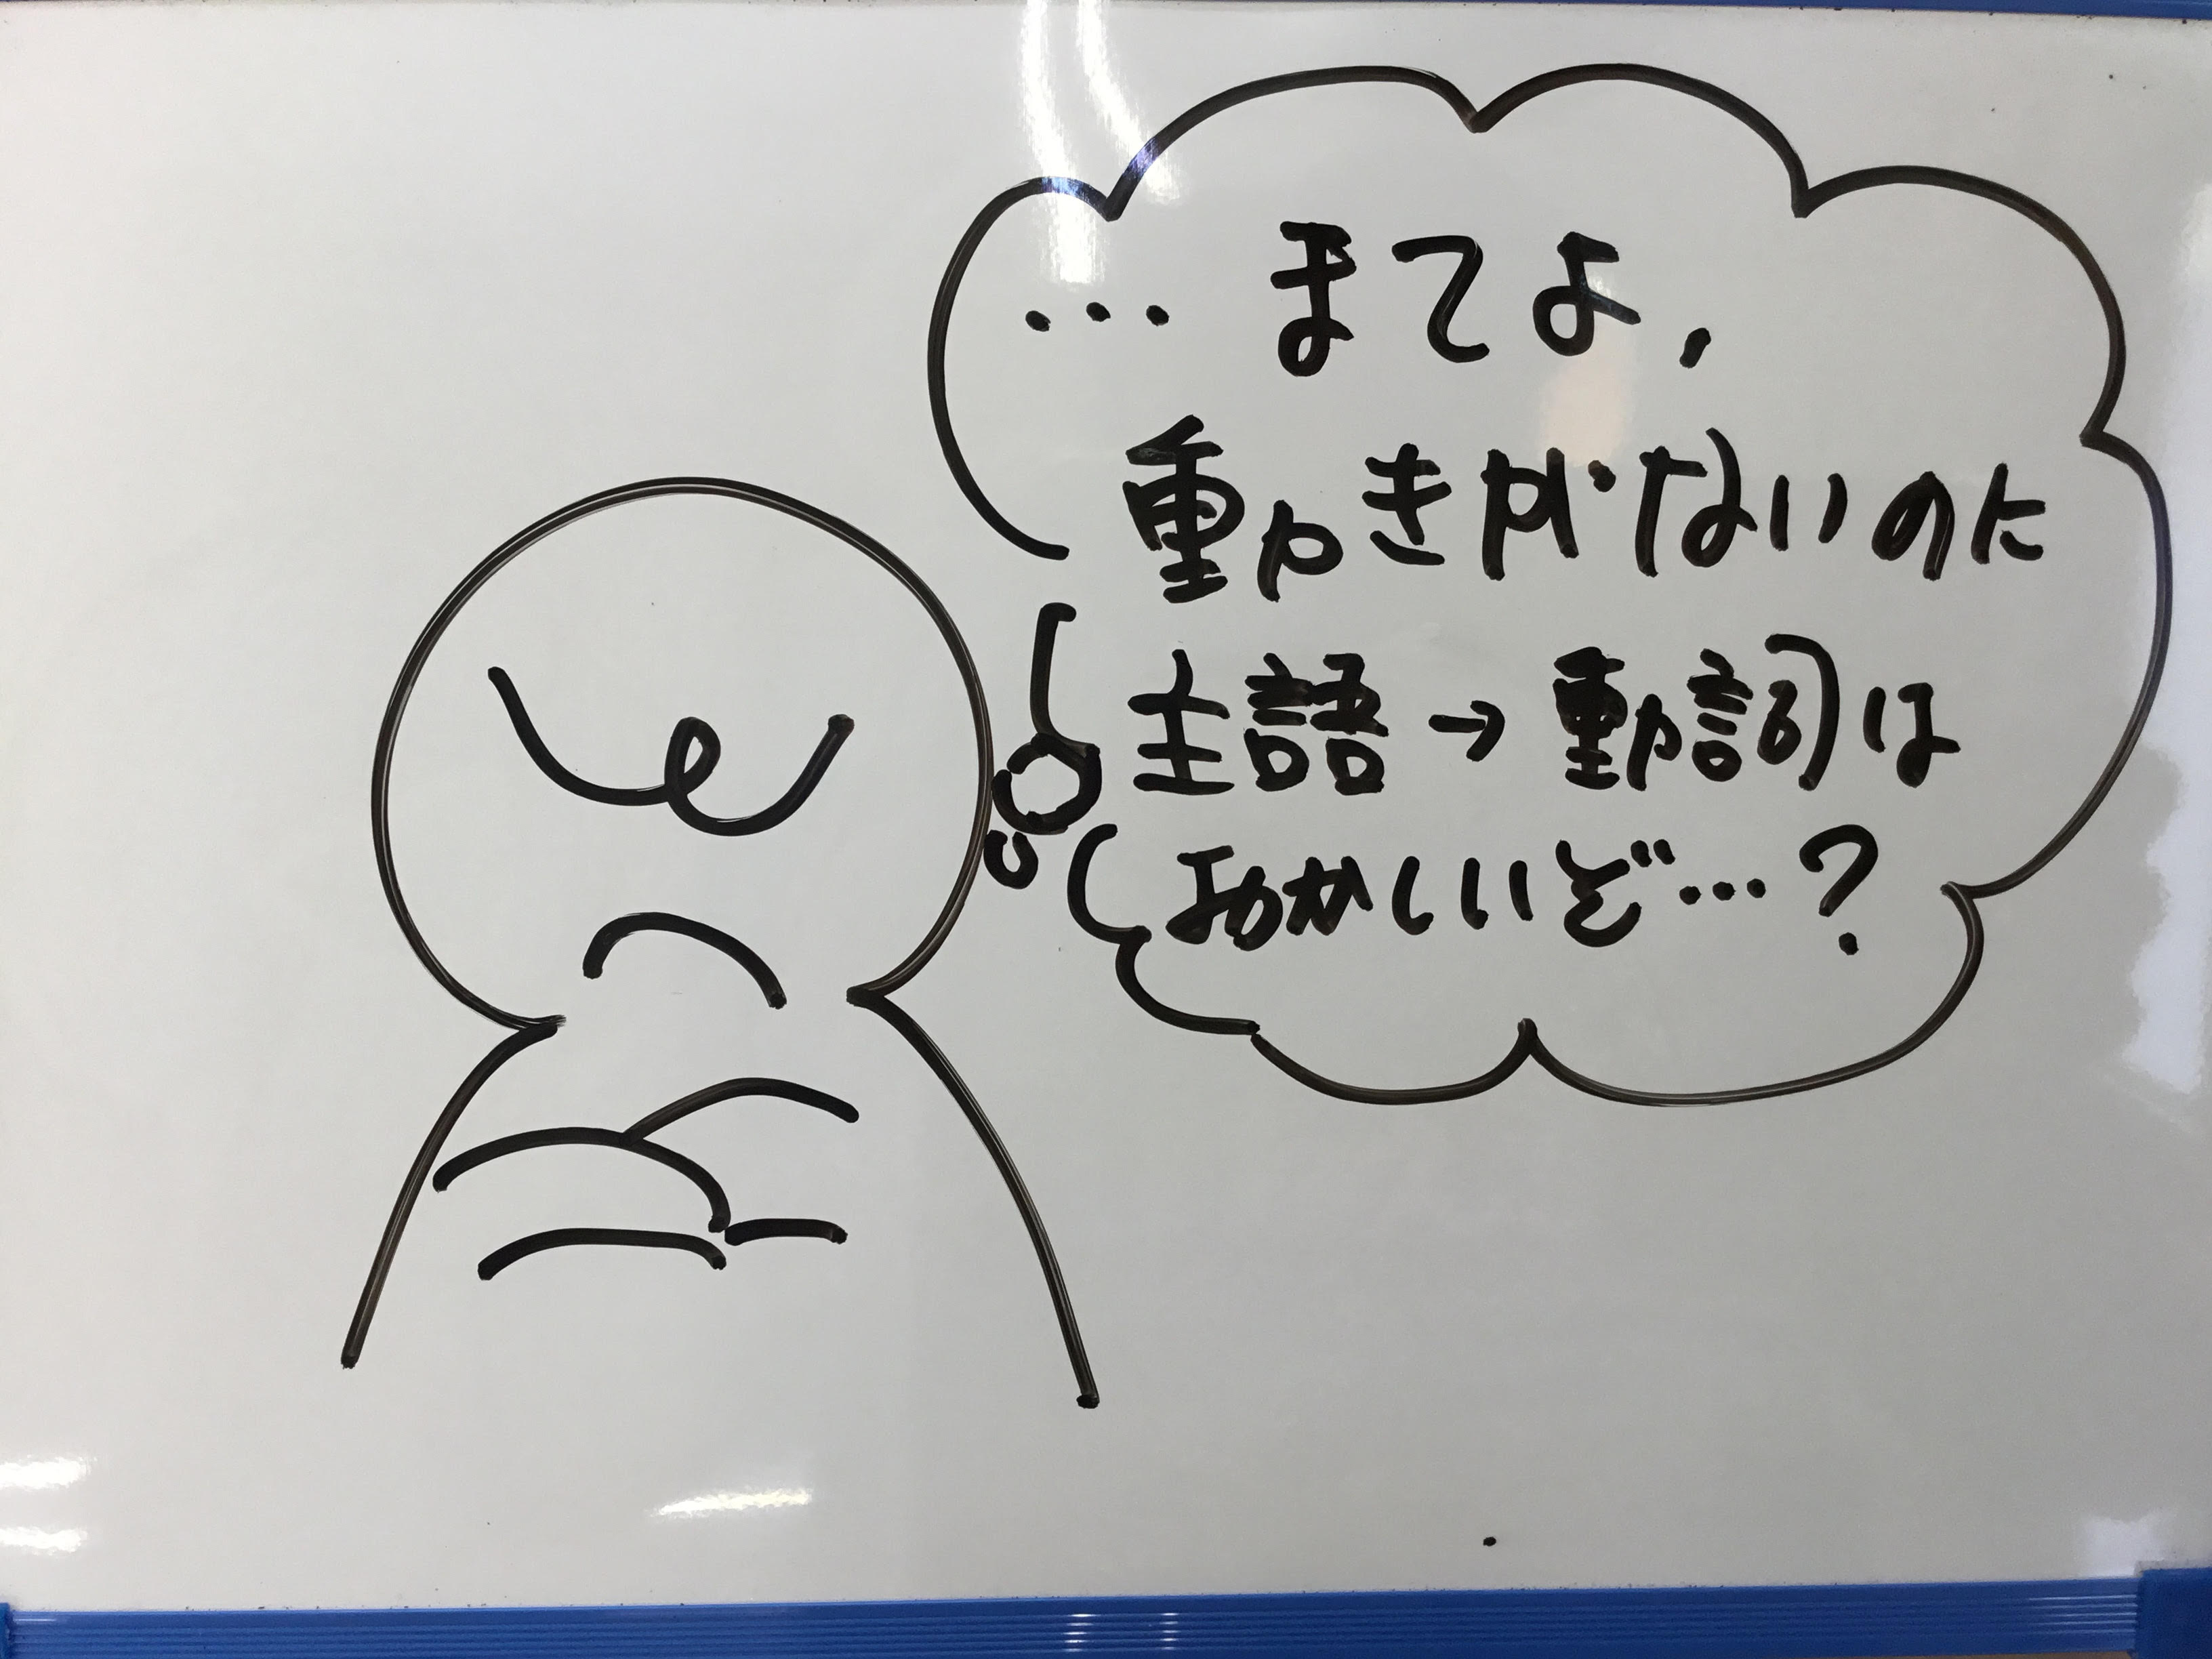 … まてよ，
動きがないのに
主語→動詞は
おかしいぞ…？